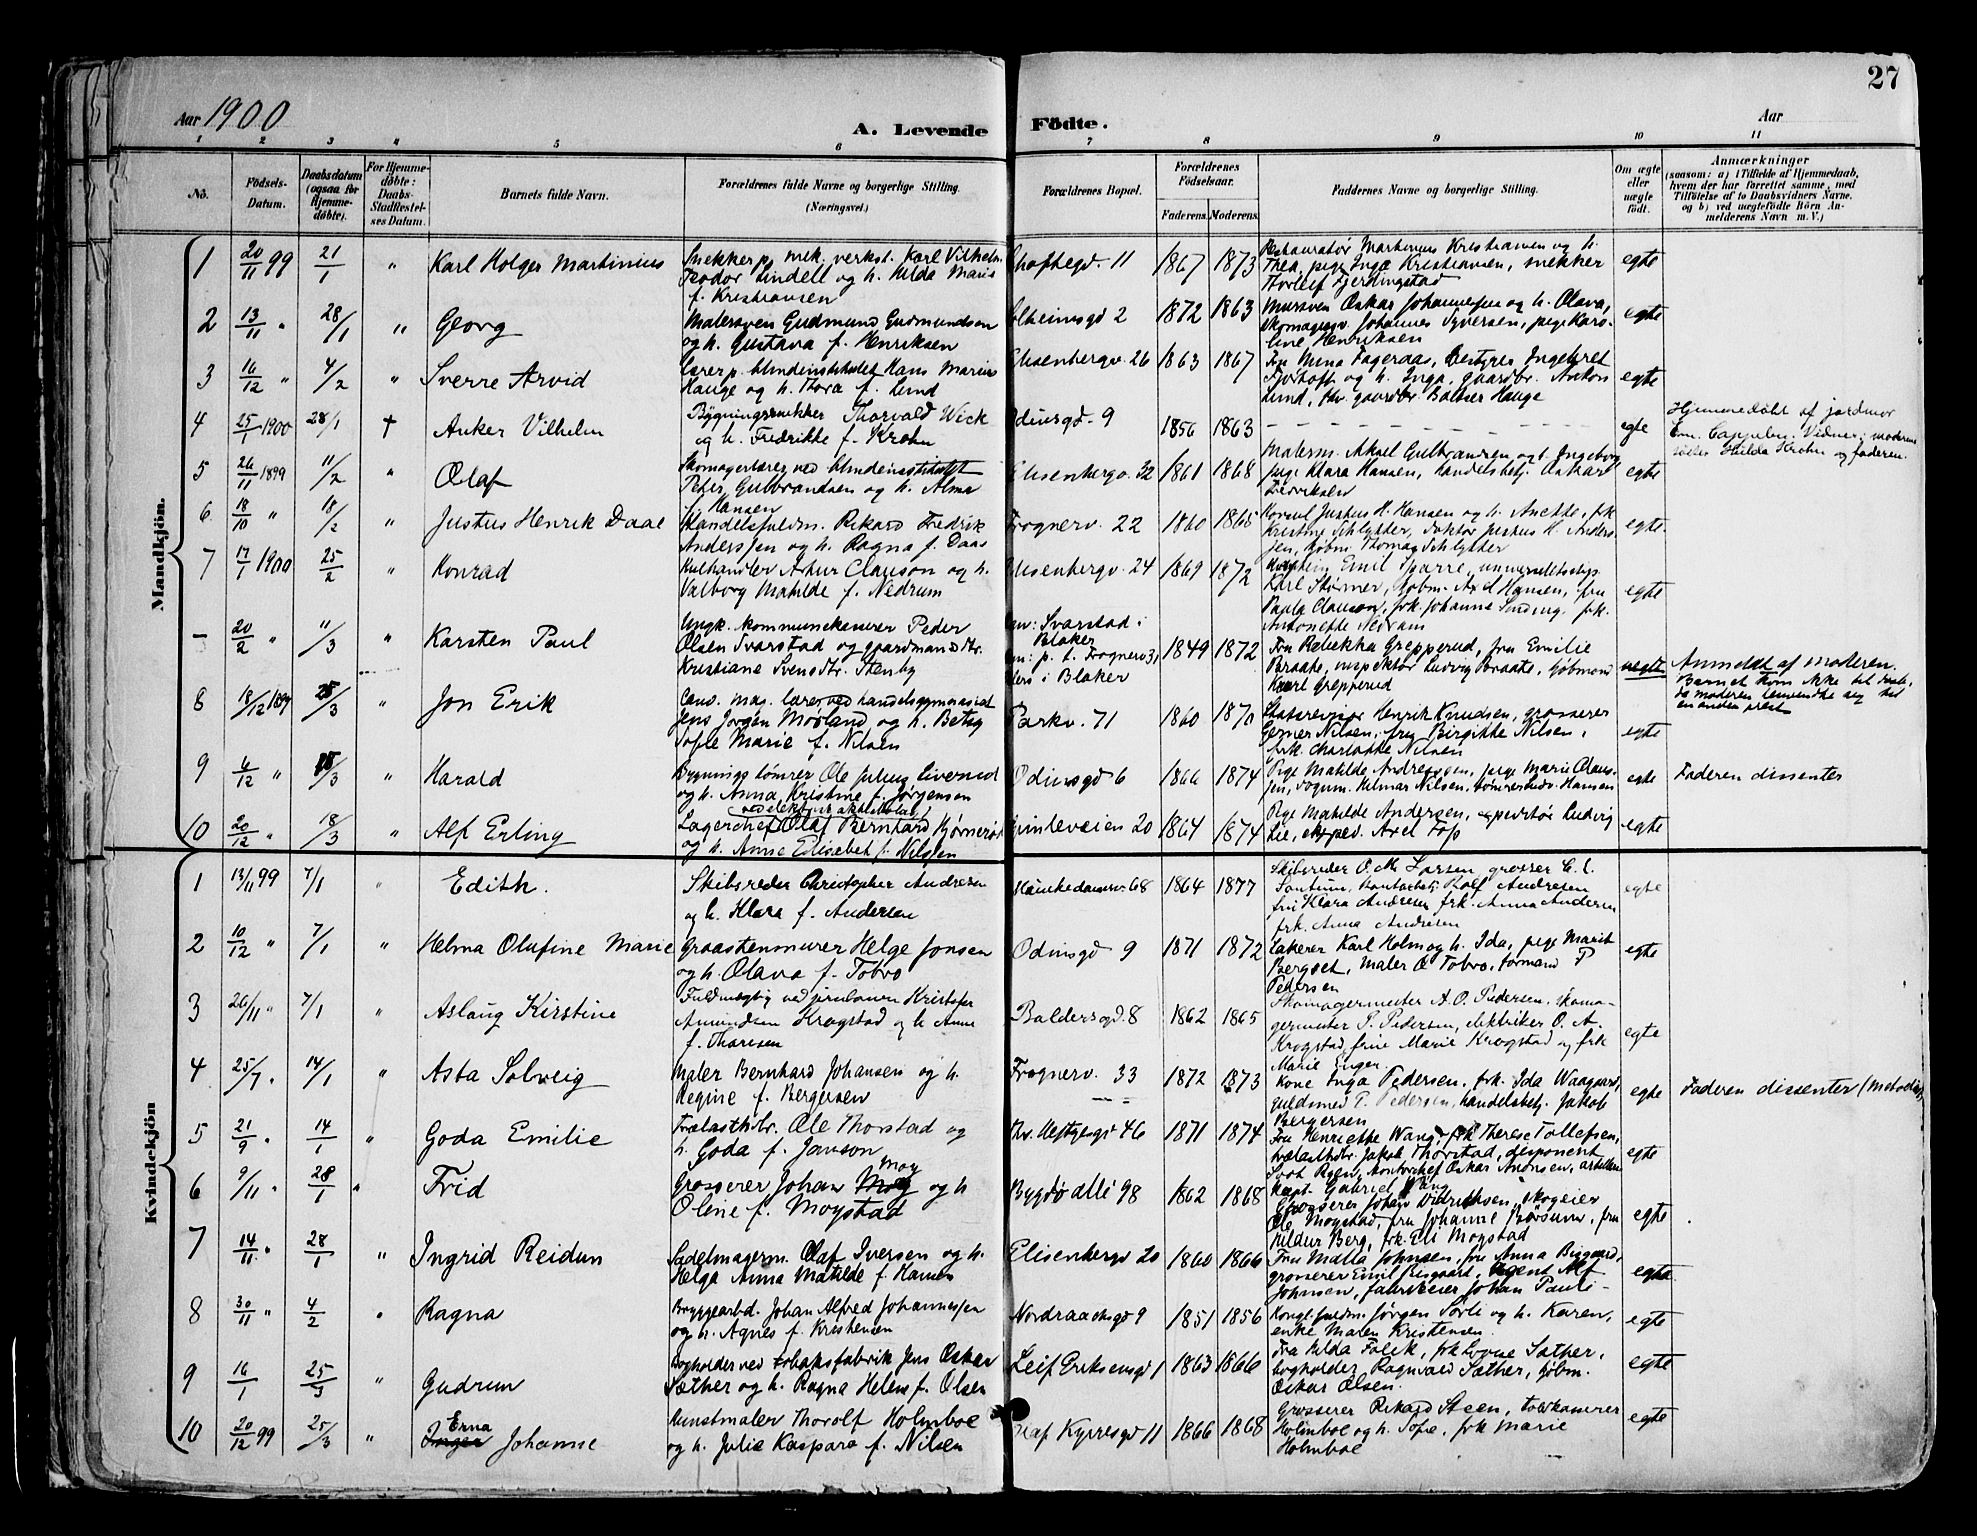 27
Aar 1900
A. Levende Födte.
Aar
1 2 3 4 5 6 7 8 9 10 11
No.
Födsels-Datum.
Daabsdatum (ogsaa for Hjemmedöbte).
For Hjemmedöbte: Daabs-Stadfæstelses Datum.
Barnets fulde Navn.
Forældrenes fulde Navne og borgerlige Stilling. (Næringsvei.)
Forældrenes Bopæl.
Forældrenes Födselsaar.
Faderens. Moderens.
Faddernes Navne og borgerlige Stilling.
Om ægte eller uægte födt.
Anmærkninger
(saasom: a) i Tilfælde af Hjemmedaab, hvem der har forrettet samme, med Tilföielse af to Daabsvidners Navne, og b) ved uægtefödte Börn Anmelderens Navn m. V.)
Mandkjön.
1 20/11 99 21/1 " Karl Holger Martinius
Snekker p. mek. verkst. Karl Vilhelm
Teodor Lindell og h. Hilda Marie
f. Kristiansen
11 1867 1873
Restauratör Martinius Kristiansen og h.
Thea, pige Inga Kristiansen, snekker
Thorleif Fjerdingstad
egte
2 13/11 " 28/1 " Georg
Malersven Gudmund Gudmundsen
og h. Gustava f. Henriksen
2 1872 1863
Mursven Oskar Johannesen og h. Olava,
Johannes Syversen, pige Karo-
line Henriksen
egte
3 16/12 " 4/2 " Sverre Arvid
Lærer p. blindeinstitutet Hans Marius
Hauge og h. Thora f. Lund
Elisenbergv. 26 1863 1867
Fru Mina Fageraas, bestyrer Ingebret
Fjörtoft og h. Inga, gaardbr. Anton
Lund, gaardbr. Baltser Hauge
egte
4 25/1 1900 28/1 + Anker Vilhelm
Bygningssnekker Thorvald Wick
og h. Fredrikke f. Krohn
Odinsgd. 9 1856 1863
egte
Hjemmedöbt af jordmor
Em. Cappelen. Vidner: moderens
söster Hilda Krohn og faderen.
5 26/11 1899 11/2 " Olaf
Skomagerlærer ved blindeinstitutet
Peter Gulbrandsen og h. Alma
f. Hansen
Elisenbergv. 22 1861 1868
Malerm. Aksel Gulbrandsen og h. Ingeborg
pige Klara Hansen, handelsbetj. Oskar
egte
6 18/10 " 18/2 " Justus Henrik Daae
Handelsfuldm. Rikard Fredrik
Anderssen og h. Ragna f. Daae
Frognerv. 22 1860 1865
Konsul Justus H. Hansen og h. Anette, frk.
Kristine Schlytter, doktor Justus H. Anders-
sen, kjöbm. Thomas Schlytter
egte
7 17/1 1900 25/2 " Konrad
Kulhandler Artur Clauson og h.
Valborg Matilde f. Nedrum
Elisenbergv. 24 1869 1872
Emil Sparre,
Karl Störmer, kjöbm. Axel Hansen, fru
Paula Clauson, frk. Johanne Sinding, frk.
Antonette Nedrum
egte
- 20/2 " 11/3 " Karsten Paul
Ungk. kommunekaserer Peder
Olsen Svarstad og gaardmandsdtr.
Kristiane Svendsdtr. Stenby
Svarstad i
Blaker
p. t. Frognerv. 31
i Blaker
1849 1872
Fru Rebekka Grepperud, fru Emilie
Braate, inspektör Ludvig Braate, kjöbmand
Karl Grepperud
uegte
Anmeldt af moderen.
Barnet kom ikke til daab,
da moderen henvendte sig til
en anden prest
8 18/12 1899 25/3 " Jon Erik
Cand. mag. lærer ved handelsgymnasiet
Jens Jörgen Mörland og h. Betsy
Sofie Marie f. Nilsen
Parkv. 71 1860 1870
Statsrevisor Henrik Knudsen, grosserer
Gerner Nilsen, fru Birgitte Nilsen,
frk. Charlotte Nilsen
egte
9 6/12 " 18/3 " Harald
Bygningstömrer Ole Julius Livernud
og h. Anna Kristine f. Jörgensen
Odinsgd 6 1866 1874
Pige Matilde Andreassen, pige Marie Claus-
sen, vognm. Hilmar Nilsen, tömrer Ludv. Hansen
egte
Faderen dissenter
10 20/12 " 18/3 " Alf Erling
Lagerchef Olaf Bernhard Kjörnerud
og h. Anna Elisabet f. Nilsen
Gimleveien 20 1864 1874
Pige Matilde Andersen, Ludvig
Lie, exped. Axel Top
egte
Kvindekjön
1 13/11 99 7/1 " Edith.
Skibsreder Christopher Andresen
og h. Klara f. Andersen
68 1864 1877
Skibsreder O. M. Larsen, grosser C. L.
Sontum, kontorbetj. Rolf Andresen
fru Klara Andresen, frk. Anna Andersen
frk. Anna Andresen
egte
2 10/12 " 7/1 " Helma Olufine Marie
Graastenmurer Helge Jonsen
og h. Olava f. Tobro
Odinsgd 9 1871 1872
Lakerer Karl Holm og h. Ida, pige Marit
Bergset, maler O Tobro, formand P
Pedersen
egte
3 26/11 " 7/1 " Aslaug Kirstine
Fuldmægtig ved jernbanen Kristofer
Amundsen Krogstad og h. Anne
f. Thoresen
Baldersgd. 8 1862 1865
Skomagermester A. O. Pedersen, skoma-
germester P. Pedersen, elektriker O. A.
Krogstad, fru Marie Krogstad og frk
Marie Enger
egte
4 25/7 " 14/1 " Asta Solveig
Maler Bernhard Johansen og h.
Regine f. Bergersen
Frognerv. 33 1872 1873
Kone Inga Pedersen, frk. Ida Waagaard,
guldsmed P. Pedersen, handelsbetj. Jakob
Bergersen
egte
Faderen dissenter (metodist)
5 21/9 14/1 " Goda Emilie
Trælasthdlr. Ole Thorstad og
h. Goda f. Jonson
Th. Heftyesgd 46 1871 1874
Fru Henriette Wang, frk Therese Tollefsen,
trælasthdlr. Jakob Thorstad, disponent
kontorchef Oskar Aronsen,
Kapt. Gabriel Wang
egte
6 9/11 " 28/1 " Frid
Grosserer Johan Moy og h
Oline f. Moystad
Bygdö alle 98 1862 1868
Grosserer Johan Didriksen, skogeier
Ole Mogstad, fru Johanne Börsum, fru
Hildur Berg, frk. Eli Mogstad
egte
7 14/11 " 28/1 " Ingrid Reidun
Sadelmagerm. Olaf Iversen og h.
Helga Anna Matilde f. Hansen
Elisenbergv 20 1860 1866
Fru Malla Johnsen, fru Anna Bisgaard,
grosserer Emil Bisgaard, agent Alf
Johnsen, fabrikeier Johan Pauli-
egte
8 30/11 " 4/2 " Ragna
Bryggearbd. Johan Alfred Johannessen
og h. Agnes f. Kristensen
Nordraachsgd 9 1851 1856
Kongl. fuldm. Jörgen Sörli og h. Karen,
enke Malen Kristensen
egte
9 16/1 25/3 " Gudrun
Bogholder ved tobaksfabrik Jens Oskar
Sæther og h. Ragna Helene f. Olsen
Leif Eriksensgd 1 1863 1866
Fru Hilda Falck, frk Lovne Sæther,
bogholder Ragnvald Sæther, kjöbm.
Oskar Olsen.
egte
10 20/12 99 25/3 " Erna Johanne
Kunstmaler Thorolf Holmboe
og h. Julie Kaspara f. Nilsen
Olaf Kyrresgd 11 1866 1868
Grosserer Rikard Steen, toldkaserer
Holmboe og h. Sofie, frk Marie
Holmboe
egte